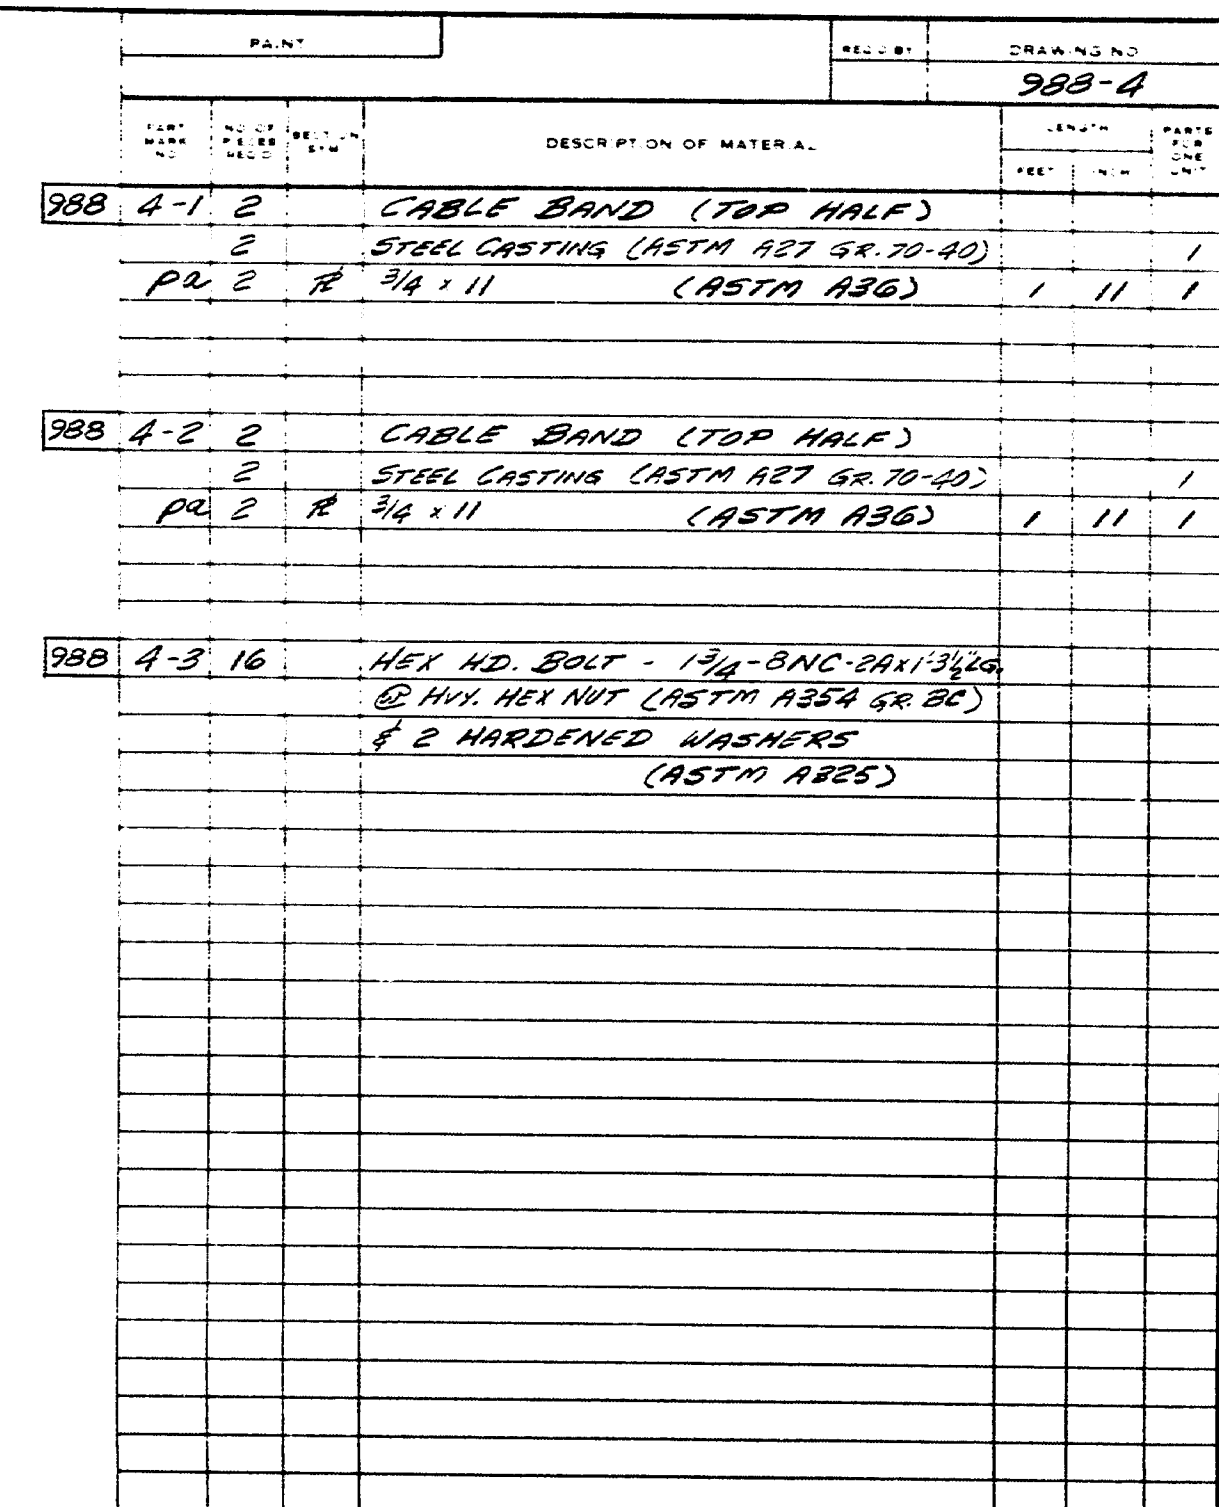 PAINT
REQ'D BY
DRAWING NO
988-4
PART MARK NO
NO OF PIECES REQ'D
SECTION SYM
DESCRIPTION OF MATERIAL
LENGTH
FEET
INCH
PARTS FOR ONE UNIT
988 4-1 2 CABLE BAND (TOP HALF)
2 STEEL CASTING (ASTM A27 GR. 70-40) 1
pa 2 ℄ 3/4 x 11 (ASTM A36) 1 11 1
988 4-2 2 CABLE BAND (TOP HALF)
2 STEEL CASTING (ASTM A27 GR. 70-40) 1
pa 2 ℄ 3/4 x 11 (ASTM A36) 1 11 1
988 4-3 16 HEX HD. BOLT - 1 3/4-8NC-2A x 1'-3 1/2" LG.
HVY. HEX NUT (ASTM A354 GR. BC)
& 2 HARDENED WASHERS
(ASTM A325)